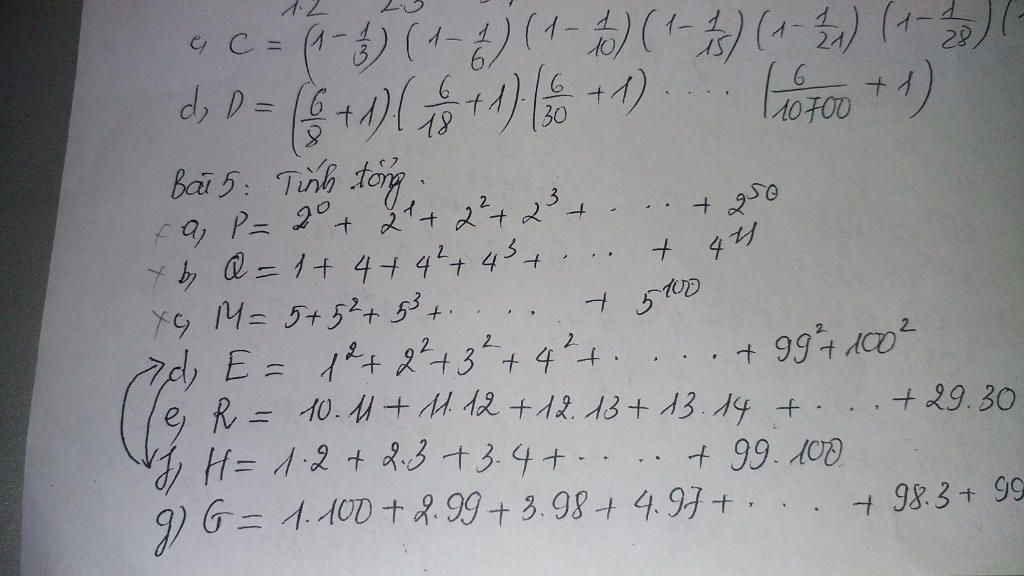 c, C = (1 - 1/3) (1 - 1/6) (1 - 1/10) (1 - 1/15) (1 - 1/21) (1 - 1/28) (
d, D = (6/8 + 1).(6/18 + 1).(6/30 + 1) ..... (6/10700 + 1)
Bài 5: Tính tổng.
x a, P = 2⁰ + 2¹ + 2² + 2³ + .... + 2⁵⁰
x b, Q = 1 + 4 + 4² + 4³ + .... + 4¹¹
x c, M = 5 + 5² + 5³ + ..... + 5¹⁰⁰
d, E = 1² + 2² + 3² + 4² + ..... + 99² + 100²
e, R = 10.11 + 11.12 + 12.13 + 13.14 + .... + 29.30
f, H = 1.2 + 2.3 + 3.4 + ..... + 99.100
g) G = 1.100 + 2.99 + 3.98 + 4.97 + .... + 98.3 + 99